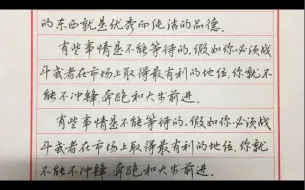 的东西就是优秀而纯洁的品德.
有些事情是不能等待的.假如你必须战
斗或者在市场上取得最有利的地位,你就不
能不冲锋、奔跑和大步前进.
有些事情是不能等待的.假如你必须战
斗或者在市场上取得最有利的地位,你就
不能不冲锋、奔跑和大步前进.